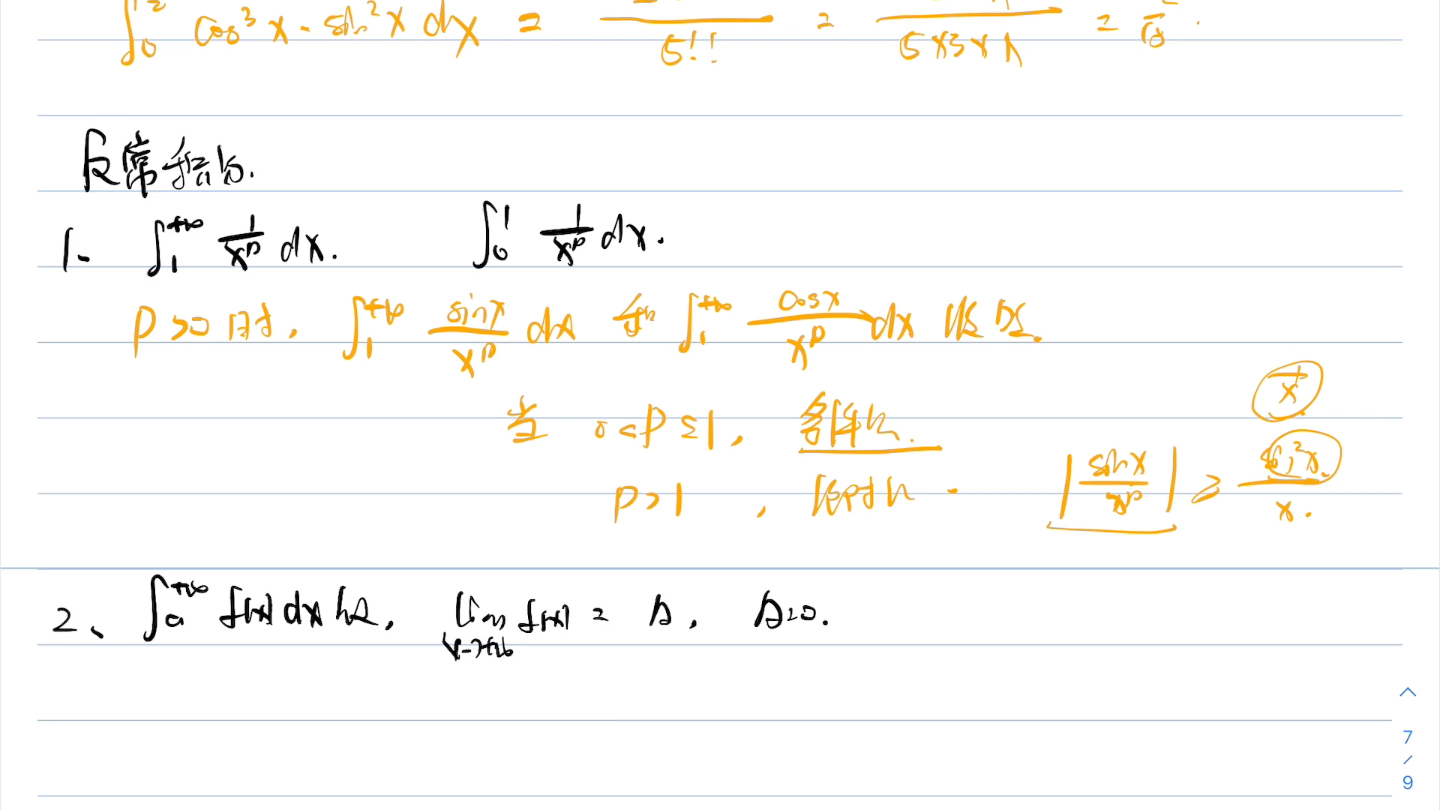 ∫₀ cos³x · sin²x dx = —/5!! = —/5×3×1 = 2/15.
反常积分.
1. ∫₁^{+∞} 1/x^p dx. ∫₀¹ 1/x^p dx.
p>0时, ∫₁^{+∞} sinx/x^p dx 和 ∫₁^{+∞} cosx/x^p dx 收敛.
当 0<p≤1, 条件收. 1/x
p>1, 绝对收. |sinx/x^p| ≥ sin²x/x.
2、∫ₐ^{+∞} f(x)dx 收敛, lim_{x→+∞} f(x) = A, A=0.
7/9